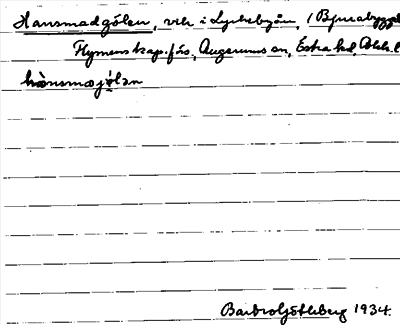 Hansmadgölen, vik i Lyckebyån, 1 Bjurabygget
Flymens kap.förs., Augerums sn, Östra hd, Blek. l
hànsmajø̀lən
Barbro Göthberg 1934.